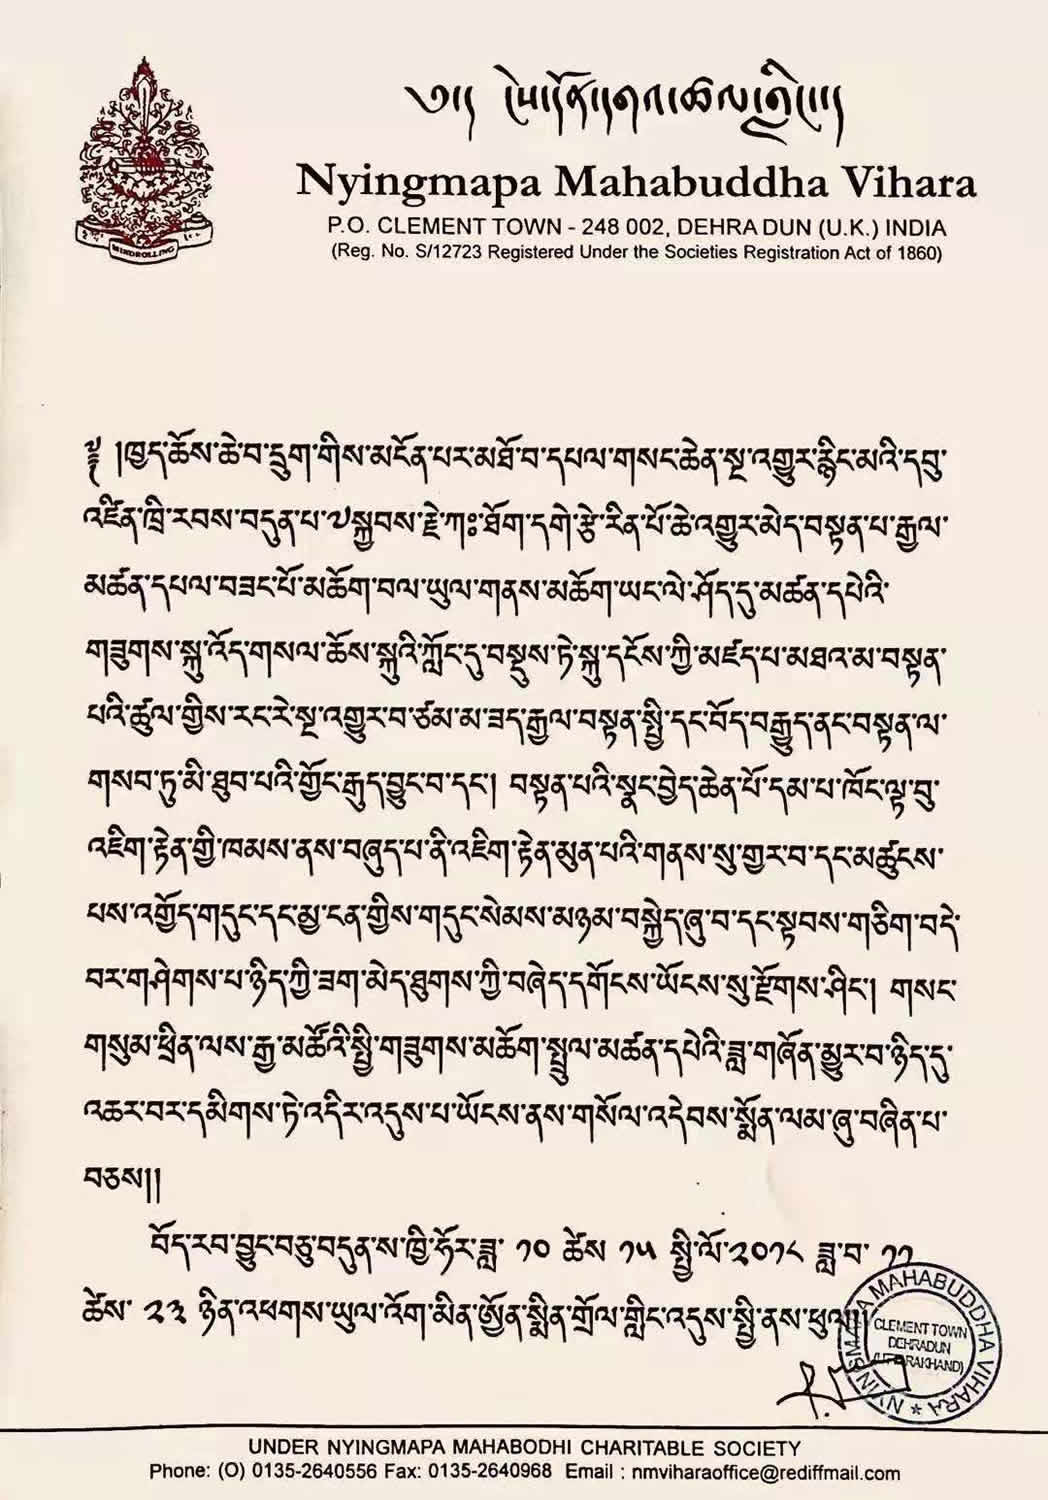 MINDROLLING
Nyingmapa Mahabuddha Vihara
P.O. CLEMENT TOWN - 248 002, DEHRA DUN (U.K.) INDIA
(Reg. No. S/12723 Registered Under the Societies Registration Act of 1860)
༄༅། །ཁྱད་ཆོས་ཆེ་བ་དྲུག་གིས་མངོན་པར་མཐོ་བ་དཔལ་གསང་ཆེན་སྔ་འགྱུར་རྙིང་མའི་དབུ་
འཛིན་ཁྲི་རབས་བདུན་པ་༧སྐྱབས་རྗེ་ཀཿ་ཐོག་དགེ་རྩེ་རིན་པོ་ཆེ་འགྱུར་མེད་བསྟན་པ་རྒྱལ་
མཚན་དཔལ་བཟང་པོ་མཆོག་བལ་ཡུལ་གནས་མཆོག་ཡང་ལེ་ཤོད་དུ་མཚན་དཔེའི་
གཟུགས་སྐུ་འོད་གསལ་ཆོས་སྐུའི་ཀློང་དུ་བསྡུས་ཏེ་སྐུ་དངོས་ཀྱི་མཛད་པ་མཐའ་མ་བསྟན་
པའི་ཚུལ་གྱིས་རང་རེ་སྔ་འགྱུར་བ་ཙམ་མ་ཟད་རྒྱལ་བསྟན་སྤྱི་དང་བོད་བརྒྱུད་ནང་བསྟན་ལ་
གསབ་ཏུ་མི་ཐུབ་པའི་གྱོང་རྒུད་བྱུང་བ་དང་། བསྟན་པའི་སྣང་བྱེད་ཆེན་པོ་དམ་པ་ཁོང་ལྟ་བུ་
འཇིག་རྟེན་གྱི་ཁམས་ནས་བཞུད་པ་ནི་འཇིག་རྟེན་མུན་པའི་གནས་སུ་གྱར་བ་དང་མཚུངས་
པས་འགྱོད་གདུང་དང་མྱ་ངན་གྱིས་གདུང་སེམས་མཉམ་བསྐྱེད་ཞུ་བ་དང་སྟབས་གཅིག་བདེ་
བར་གཤེགས་པ་ཉིད་ཀྱི་ཟག་མེད་ཐུགས་ཀྱི་བཞེད་དགོངས་ཡོངས་སུ་རྫོགས་ཤིང་། གསང་
གསུམ་ཕྲིན་ལས་རྒྱ་མཚོའི་སྤྱི་གཟུགས་མཆོག་སྤྲུལ་མཚན་དཔེའི་ཟླ་གཞོན་མྱུར་བ་ཉིད་དུ་
འཆར་བར་དམིགས་ཏེ་འདིར་འདུས་པ་ཡོངས་ནས་གསོལ་འདེབས་སྨོན་ལམ་ཞུ་བཞིན་པ་
བཅས།།
བོད་རབ་བྱུང་བཅུ་བདུན་ས་ཁྱི་ཧོར་ཟླ་ ༡༠ ཚེས་ ༡༥ སྤྱི་ལོ་༢༠༡༨ ཟླ་བ་ ༡༡
ཚེས་ ༢༢ ཉིན་འཕགས་ཡུལ་འོག་མིན་ཨོྱན་སྨིན་གྲོལ་གླིང་འདུས་སྤྱི་ནས་ཕུལ།།
NYINGMAPA MAHABUDDHA VIHARA
CLEMENT TOWN
DEHRADUN
(UTTARAKHAND)
UNDER NYINGMAPA MAHABODHI CHARITABLE SOCIETY
Phone: (O) 0135-2640556 Fax: 0135-2640968 Email : nmviharaoffice@rediffmail.com